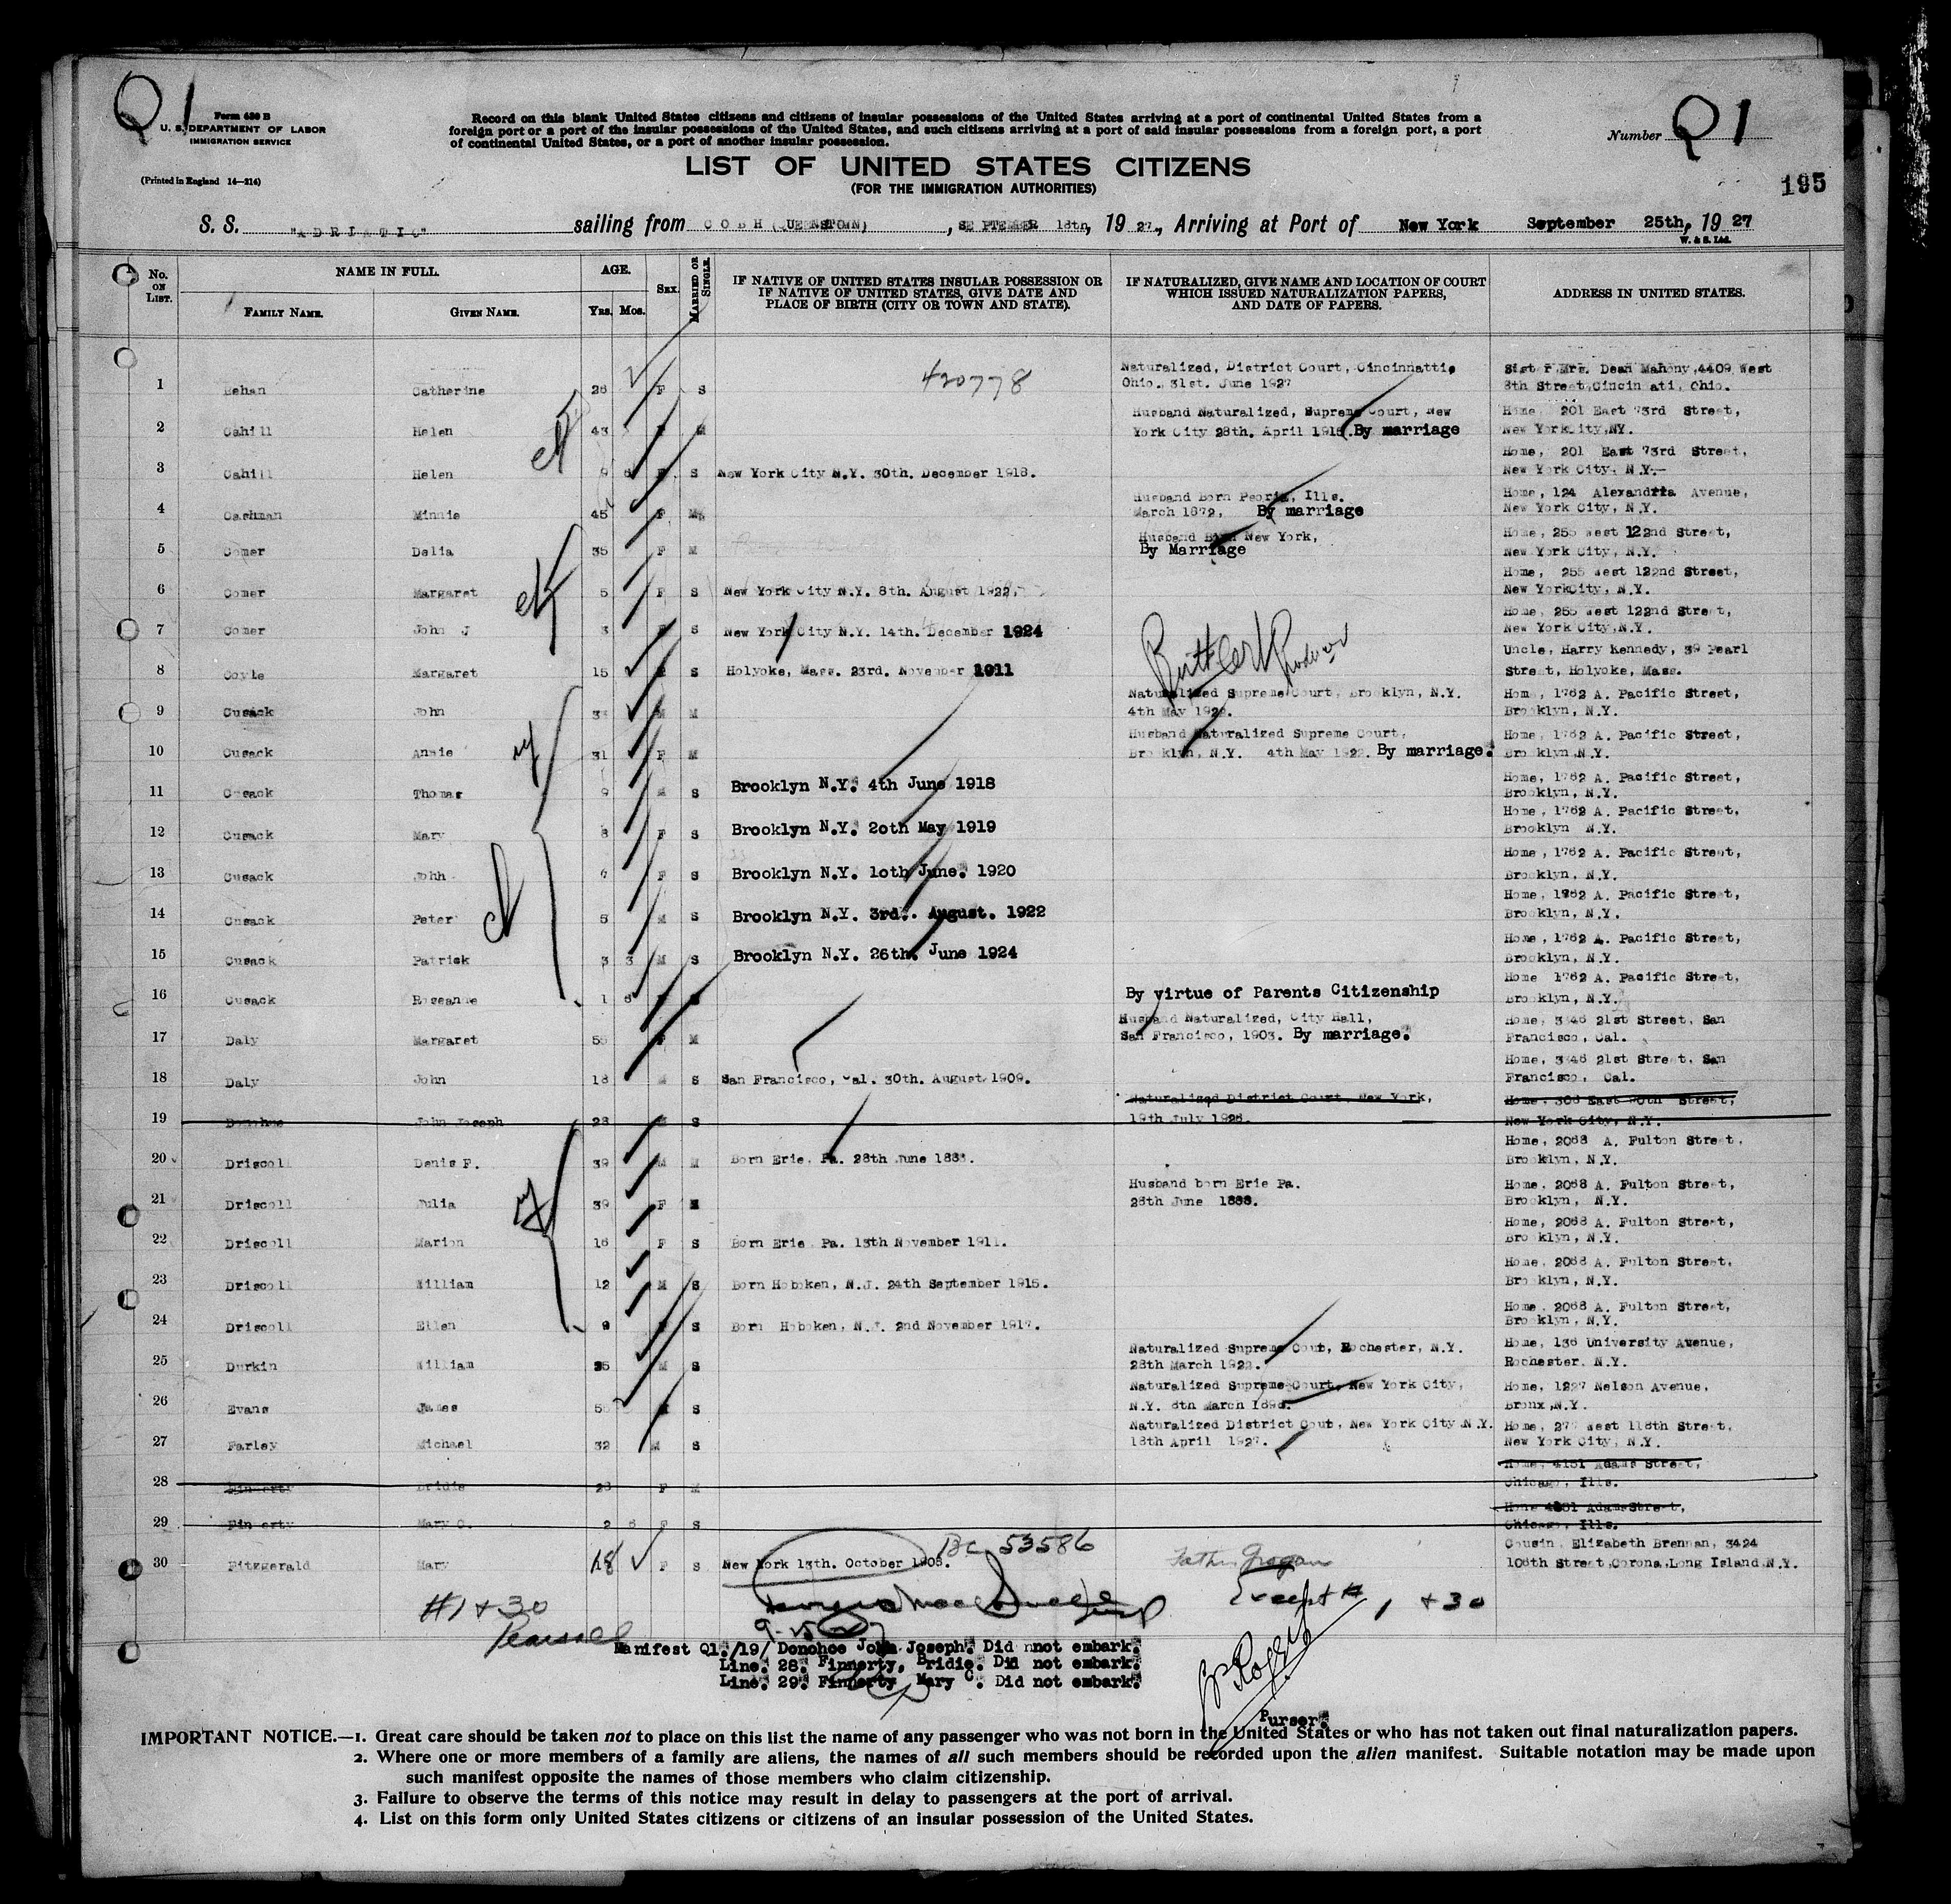 Q1
Form 630 B
U. S. DEPARTMENT OF LABOR
IMMIGRATION SERVICE
(Printed in England 14—214)
Record on this blank United States citizens and citizens of insular possessions of the United States arriving at a port of continental United States from a
foreign port or a port of the insular possessions of the United States, and such citizens arriving at a port of said insular possessions from a foreign port, a port
of continental United States, or a port of another insular possession.
LIST OF UNITED STATES CITIZENS
(FOR THE IMMIGRATION AUTHORITIES)
Number Q1
195
S. S. "ADRIATIC" sailing from COBH (QUEENSTOWN), SEPTEMBER 18th, 1927, Arriving at Port of New York September 25th, 1927
W. & S. Ltd.
No. ON LIST. NAME IN FULL. AGE. SEX. MARRIED OR SINGLE. IF NATIVE OF UNITED STATES INSULAR POSSESSION OR IF NATIVE OF UNITED STATES, GIVE DATE AND PLACE OF BIRTH (CITY OR TOWN AND STATE). IF NATURALIZED, GIVE NAME AND LOCATION OF COURT WHICH ISSUED NATURALIZATION PAPERS, AND DATE OF PAPERS. ADDRESS IN UNITED STATES.
FAMILY NAME. GIVEN NAME. YRS. MOS.
1 Behan Catherine 26 F S 420778 Naturalized, District Court, Cincinnatti, Ohio. 31st. June 1927 Sister Mrs. Dean Mahony, 4409 West 8th Street, Cincinati, Ohio.
2 Cahill Helen 43 F M Husband Naturalized, Supreme Court, New York City 28th. April 1918. By marriage Home, 201 East 73rd Street, New York City, NY.
3 Cahill Helen 9 F S New York City N.Y. 30th. December 1918. Home, 201 East 73rd Street, New York City, N.Y.—
4 Cashman Minnie 45 F M Husband Born Peoria, Ills. March 1872, By marriage Home, 124 Alexandria Avenue, New York City, N.Y.
5 Comer Delia 35 F M Husband Birth New York, By Marriage Home, 255 West 122nd Street, New York City, N.Y.
6 Comer Margaret 5 F S New York City N.Y. 8th. August 1922. Home, 255 West 122nd Street, New York City, N.Y.
7 Comer John J 3 S New York City N.Y. 14th. December 1924 Home, 255 West 122nd Street, New York City, N.Y.
8 Coyle Margaret 15 F S Holyoke, Mass. 23rd. November 1911 Uncle, Harry Kennedy, 39 Pearl Street, Holyoke, Mass.
9 Cusack John M M Naturalized Supreme Court, Brooklyn, N.Y. 4th May 1922. Home, 1762 A. Pacific Street, Brooklyn, N.Y.
10 Cusack Annie 31 F M Husband Naturalized Supreme Court, Brooklyn, N.Y. 4th May 1922. By marriage. Home, 1762 A. Pacific Street, Brooklyn N.Y.
11 Cusack Thomas 9 M S Brooklyn N.Y. 4th June 1918 Home, 1762 A. Pacific Street, Brooklyn, N.Y.
12 Cusack Mary 8 F S Brooklyn N.Y. 20th May 1919 Home, 1762 A. Pacific Street, Brooklyn N.Y.
13 Cusack John 7 F S Brooklyn N.Y. 10th June. 1920 Home, 1762 A. Pacific Street, Brooklyn, N.Y.
14 Cusack Peter 5 M S Brooklyn N.Y. 3rd. August. 1922 Home, 1762 A. Pacific Street, Brooklyn, N.Y.
15 Cusack Patrick 3 3 M S Brooklyn N.Y. 26th. June 1924 Home, 1762 A. Pacific Street, Brooklyn, N.Y.
16 Cusack Roseanne 1 6 F S By virtue of Parents Citizenship Home 1762 A. Pacific Street, Brooklyn, N.Y.
17 Daly Margaret 55 F M Husband Naturalized, City Hall, San Francisco, 1903. By marriage. Home, 3446 21st Street, San Francisco, Cal.
18 Daly John 18 M S San Francisco, Cal. 30th. August, 1909. Home, 3446 21st Street, San Francisco, Cal.
19 Donohoe John Joseph 28 M S Naturalized District Court, New York, 19th July 1926. Home, 308 East 90th Street, New York City, N.Y.
20 Driscoll Denis F. 39 M M Born Erie, Pa. 28th June 1888. Home, 2068 A. Fulton Street, Brooklyn, N.Y.
21 Driscoll Julia 39 F M Husband born Erie Pa. 28th June 1888. Home, 2068 A. Fulton Street, Brooklyn, N.Y.
22 Driscoll Marion 16 F S Born Erie, Pa. 13th November 1911. Home, 2068 A. Fulton Street, Brooklyn, N.Y.
23 Driscoll William 12 M S Born Hoboken, N.J. 24th September 1915. Home, 2068 A. Fulton Street, Brooklyn, N.Y.
24 Driscoll Ellen 9 F S Born Hoboken, N.J. 2nd November 1917. Home, 2068 A. Fulton Street, Brooklyn, N.Y.
25 Durkin William 35 M S Naturalized Supreme Court, Rochester, N.Y. 28th March 1922. Home, 136 University Avenue, Rochester, N.Y.
26 Evans James M S Naturalized Supreme Court, New York City, N.Y. 8th March 1898. Home, 1227 Nelson Avenue, Bronx, N.Y.
27 Farley Michael 32 M S Naturalized District Cout, New York City N.Y. 18th April 1927. Home, 277 West 118th Street, New York City, N.Y.
28 Finnerty Bridie 28 F M Home, 4151 Adams Street, Chicago, Ills.
29 Finnerty Mary C. 2 6 F S Home 4151 Adams Street, Chicago, Ills.
30 Fitzgerald Mary 18 F S New York 13th. October 1908. BC 53586 Cousin Elizabeth Brennan, 3424 106th Street, Corona, Long Island N.Y.
#1 + 30
Except # 1 + 30
Manifest Q1./19/ Donohoe John Joseph. Did nnot embark.
Line. 28. Finnerty, Bridie. Did not embark.
Line. 29. Finnerty Mary C. Did not embark.
Purser.
IMPORTANT NOTICE.—1. Great care should be taken not to place on this list the name of any passenger who was not born in the United States or who has not taken out final naturalization papers.
2. Where one or more members of a family are aliens, the names of all such members should be recorded upon the alien manifest. Suitable notation may be made upon
such manifest opposite the names of those members who claim citizenship.
3. Failure to observe the terms of this notice may result in delay to passengers at the port of arrival.
4. List on this form only United States citizens or citizens of an insular possession of the United States.